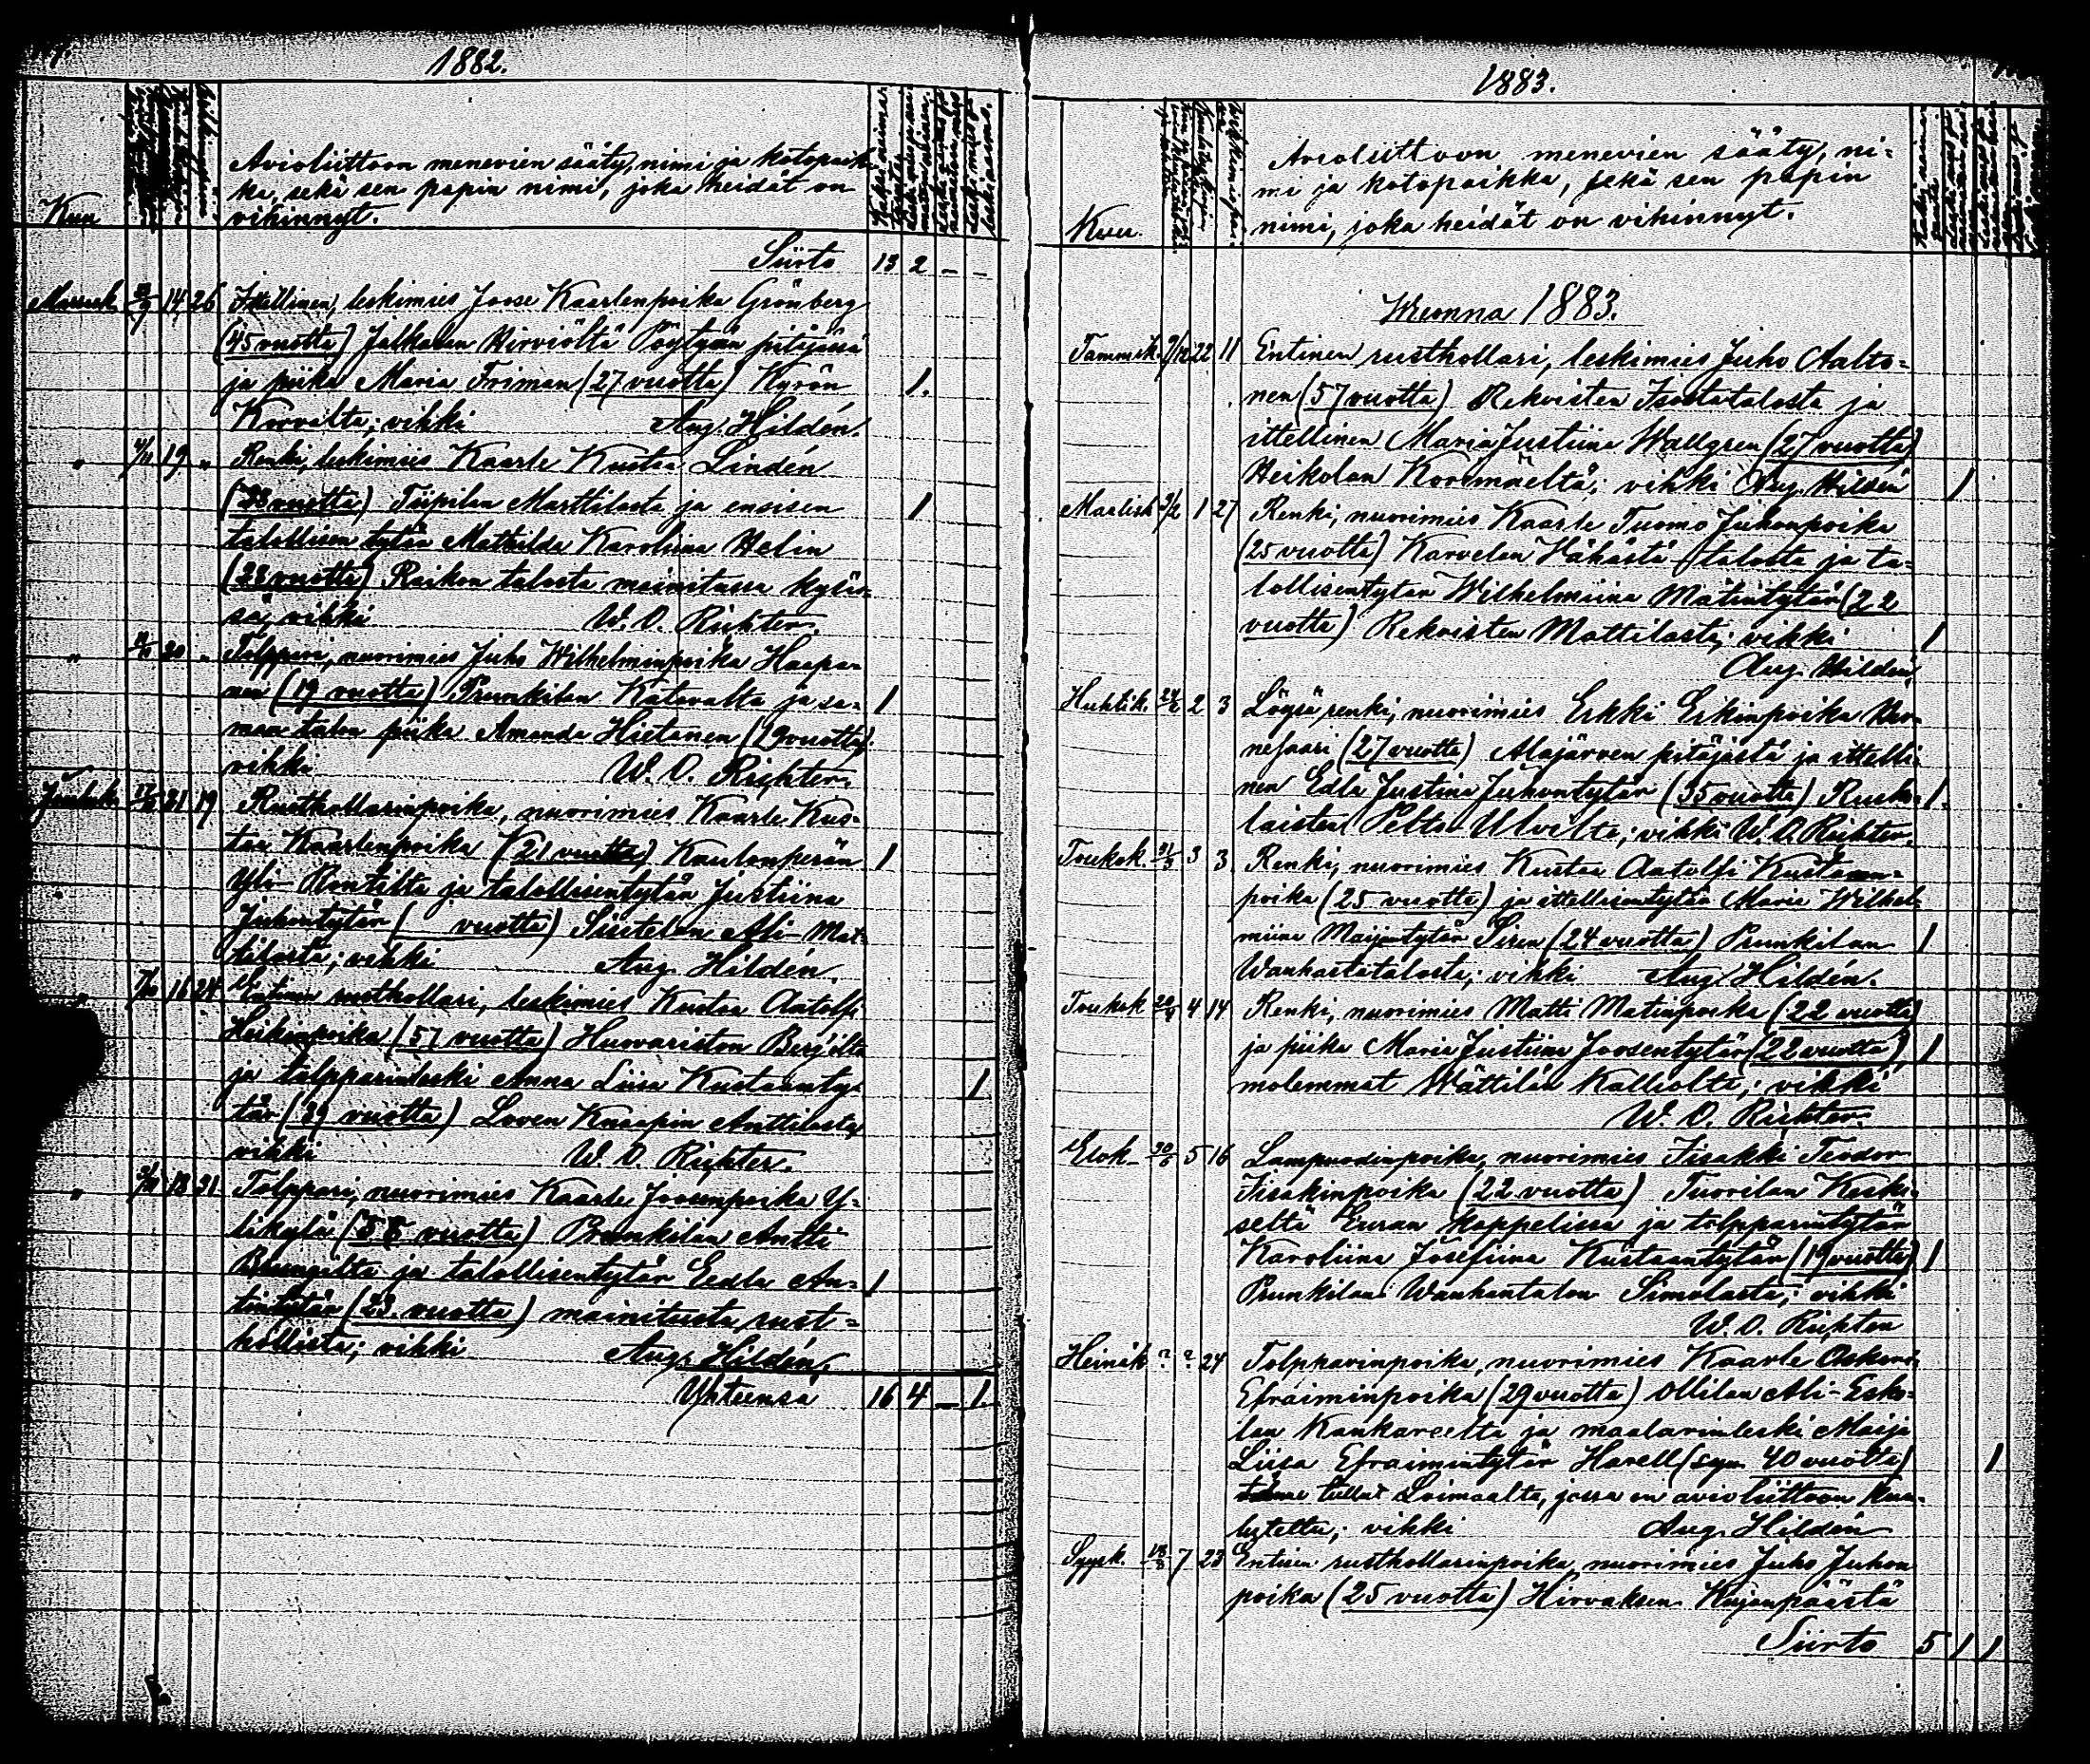 1882.
Kuu
Avioliittoon menevien sääty, nimi ja kotopaik-
ka, sekä sen papin nimi, joka heidät on
vihinnyt.
Siirto 13 2 - -
Marrask. 14 26 Itsellinen, leskimies Joose Kaarlenpoika Grönberg
(45 vuotta) Jalkalan Hirviöltä Pöytyän pitäjässä
ja piika Maria Friman (27 vuotta) Kyrön 1.
Korvalta; vihki Aug. Hildén.
" 19 " Renki, leskimies Kaarle Kustaa Lindén
(38 vuotta) Tiipilan Marttilasta ja ensisen 1
talollisen tytär Mathilda Karoliina Helin
(28 vuotta) Raikon talosta mainitussa kyläs-
sä; vihki W. O. Richter.
" 20 " Tolppari, nuorimies Juho Wilhelminpoika Haapa-
nen (19 vuotta) Prunkilan Katavalta ja sa- 1
man talon piika Amanda Hietanen (29 vuotta)
vihki W. O. Richter.
Jouluk. 21 19 Rusthollarinpoika, nuorimies Kaarle Kus-
taa Kaarlenpoika (21 vuotta) Kaulanperän 1
Yli-Rontilta ja talollisentytär Justiina
Juhontytär ( vuotta) Siutelan Ali-Mat-
tilasta; vihki Aug. Hildén.
" 16 24 Entinen rusthollari, leskimies Kustaa Aatolfi
Heikinpoika (57 vuotta) Huovariston Berg'ilta
ja tolpparinleski Anna Liisa Kustaanty- 1
tär (39 vuotta) Loven Knaapin Anttilasta
vihki W. O. Richter.
" 18 31 Tolppari, nuorimies Kaarle Joosenpoika Y-
likylä (58 vuotta) Prunkilan Antti
ja talollisentytär Eedla An- 1
tintytär (23 vuotta) mainitusta rust-
hollista; vihki Aug. Hildén.
Yhteensä 16 4 - 1.
1883.
Kuu.
Avioliittoon menevien sääty, ni-
mi ja kotopaikka, sekä sen papin
nimi, joka heidät on vihinnyt.
Wuonna 1883.
Tammik. 9/12 22 11 Entinen rusthollari, leskimies Juho Aalto-
nen (57 vuotta) Rekoisten Isostatalosta ja
ittellinen Maria Justiina Wallgren (27 vuotta)
Heikolan Korvmäeltä; vihki Aug. Hildén 1
Maalisk. 1 27 Renki, nuorimies Kaarle Tuomo Juhonpoika
(25 vuotta) Karvelan Vähästä talosta ja ta-
lollisentytär Wilhelmiina Matintytär (22
vuotta) Rekoisten Mattilasta; vihki 1
Aug. Hildén.
Huhtik. 2 3 Löysä renki, nuorimies Erkki Erkinpoika
(27 vuotta) Alajärven pitäjästä ja ittelli-
nen Edla Justina Juhontytär (35 vuotta) Rusko- 1.
laisten Pelto-Ulvilta; vihki W. O. Richter.
Toukok. 31/3 3 3 Renki, nuorimies Kustaa Aatolfi Kustaan-
poika (25 vuotta) ja ittellisentytär Maria Wilhel-
miina Maijantytär Siren (24 vuotta) Prunkilan 1
Wanhastatalosta; vihki Aug. Hildén.
Toukok 4 14 Renki, nuorimies Matti Matinpoika (22 vuotta)
ja piika Maria Justiina Joosentytär (22 vuotta), 1
molemmat Wättilän Kalliolta; vihki
W. O. Richter.
Elok- 5 16 Lampuodinpoika, nuorimies Iisakki Teodor
Iisakinpoika (22 vuotta) Tuorilan Keski-
seltä Euran kappelissa ja tolpparintytär
Karoliina Josefiina Kustaantytär (19 vuotta) 1
Prunkilan Wanhantalon Simolasta; vihki
W. O. Richter
Heinäk ? ? 24 Tolpparinpoika, nuorimies Kaarle Oskari
Efraiminpoika (29 vuotta) Ollilan Ali-Esko-
lan Kankareelta ja maalarinleski Maija
Liisa Efraimintytär Havell (syn. 40 vuotta) 1
tullut Loimaalta, jossa on avioliittoon kuu-
lutettu; vihki Aug. Hildén
Syysk. 18/8 7 23 Entisen rusthollarinpoika, nuorimies Juho Juhon
poika (25 vuotta) Hirvaksen Kujanpäästä
Siirto 5 1 1